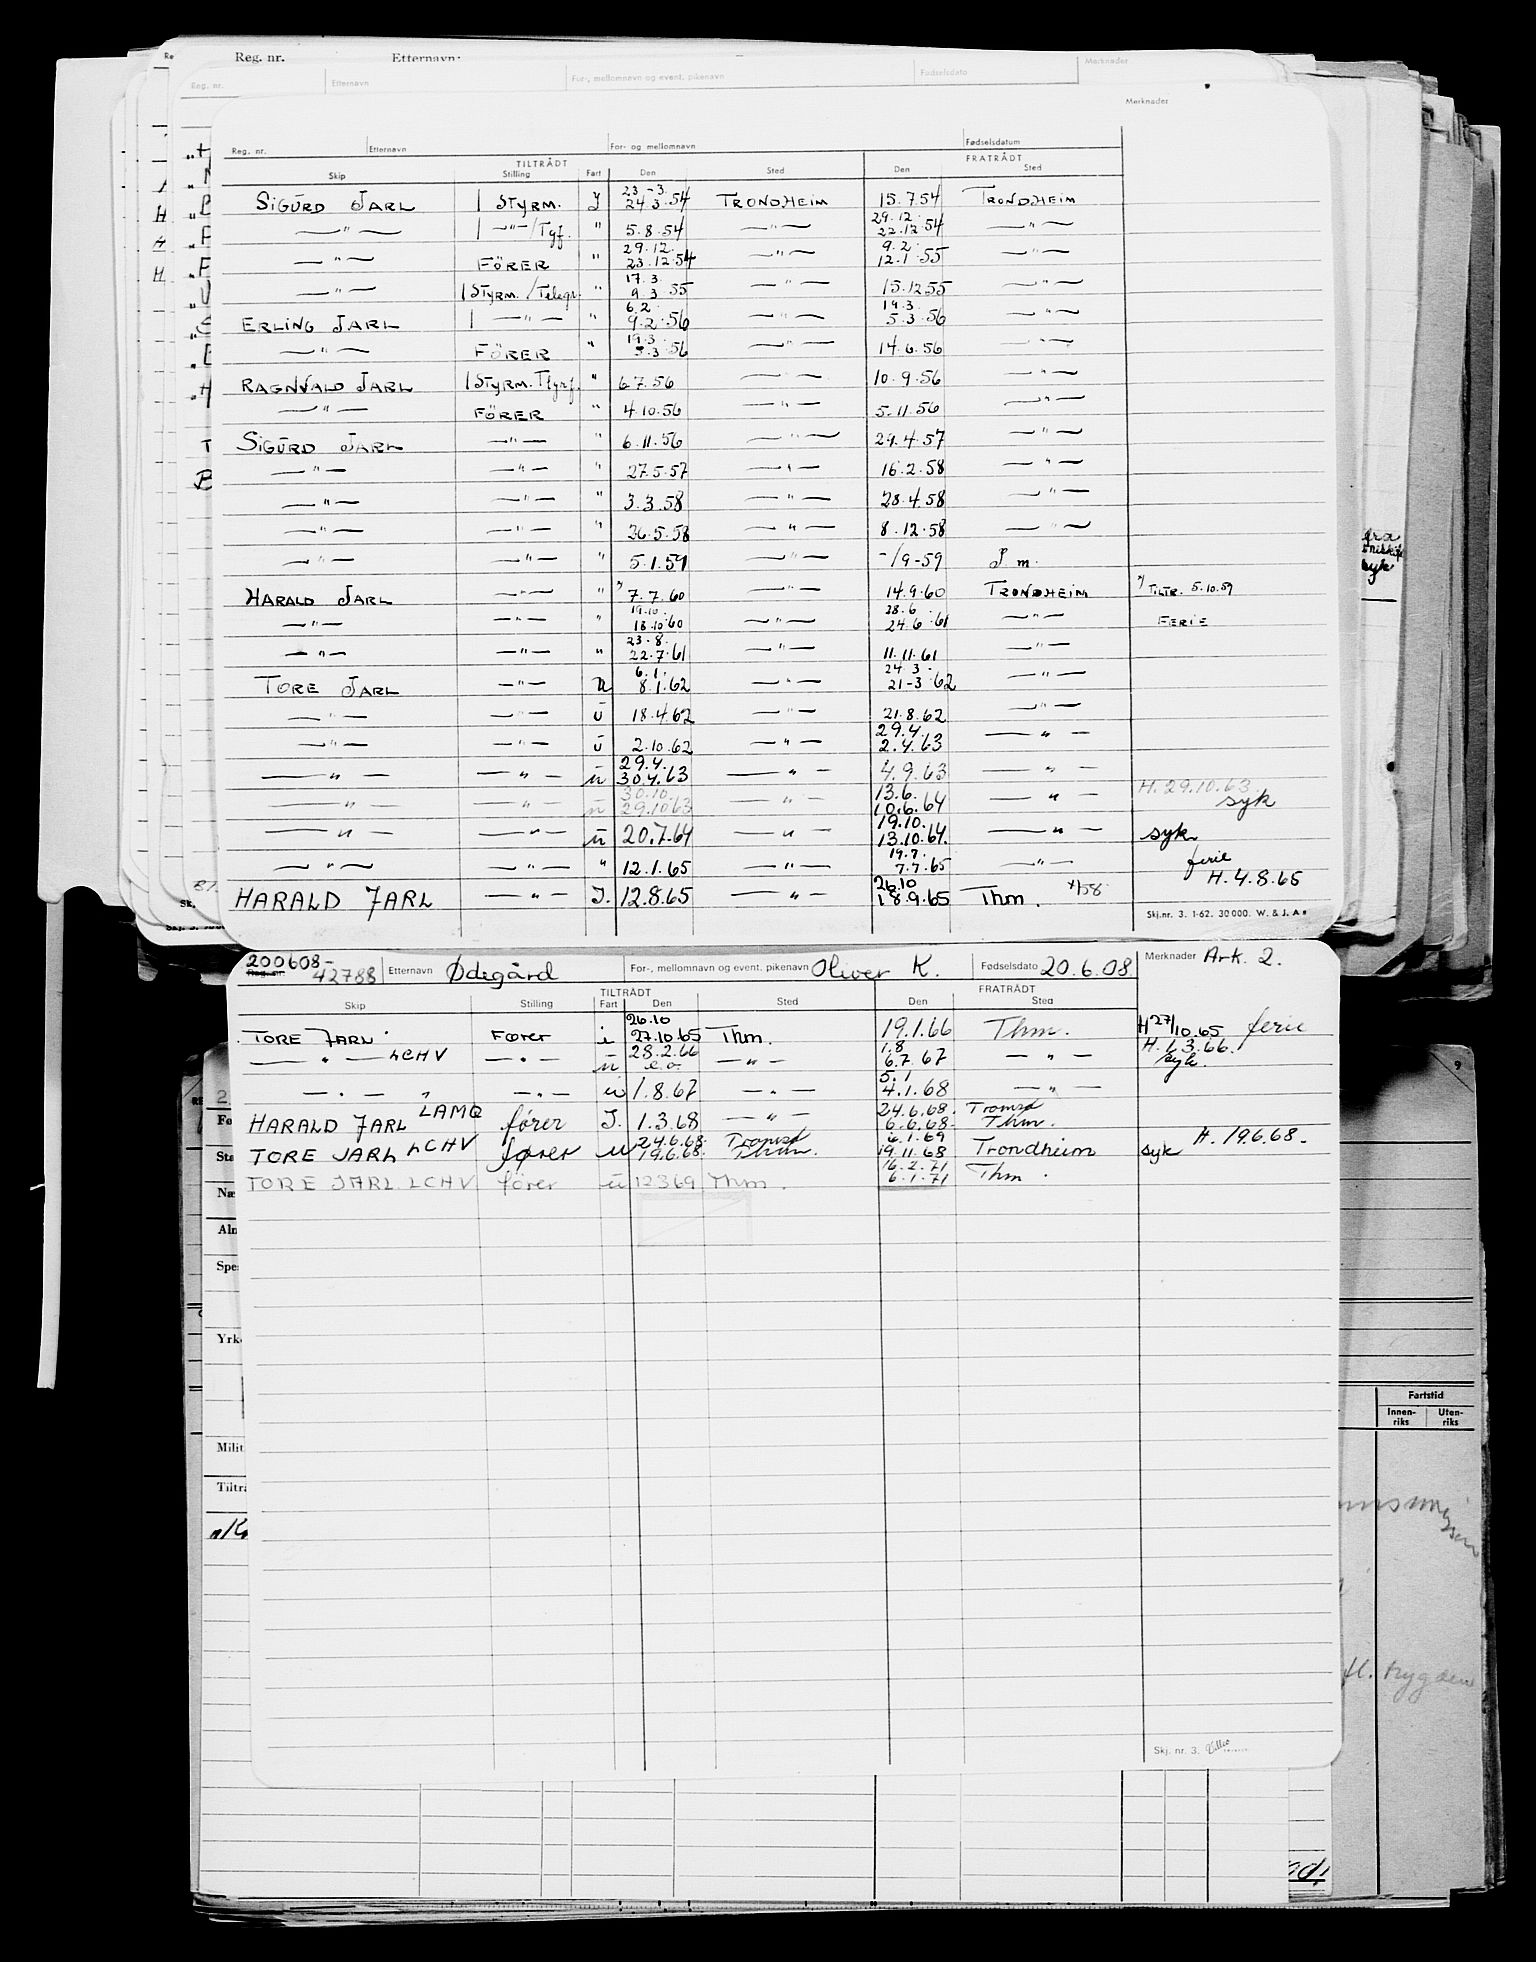 Reg. nr. Etternavn:
Reg. nr. Etternavn For-, mellomnavn og event. pikenavn Fødselsdato Merknader
Merknader
Reg. nr. Etternavn For- og mellomnavn Fødselsdatum
TILTRÅDT FRATRÅDT
Skip Stilling Fart Den Sted Den Sted
SIGURD JARL 1 STYRM. I 23.-3. 24.3.54 TRONDHEIM 15.7.54 TRONDHEIM
—"— 1 —"—/Tgf. " 5.8.54 —"— 29.12. 22.12.54 —"—
—"— FÖRER " 29.12. 23.12.54 —"— 9.2. 12.1.55 —"—
—"— 1 STYRM./Telegr. " 17.3. 9.3.55 —"— 15.12.55 —"—
ERLING JARL 1 —"— " 6.2. 9.2.56 —"— 19.3. 5.3.56 —"—
—"— FÖRER " 19.3. 5.3.56 —"— 14.6.56 —"—
RAGNVALD JARL 1 STYRM. Tlgrf. " 6.7.56 —"— 10.9.56 —"—
—"— FÖRER " 4.10.56 —"— 5.11.56 —"—
SIGURD JARL —"— " 6.11.56 —"— 29.4.57 —"—
—"— —"— " 27.5.57 —"— 16.2.58 —"—
—"— —"— " 3.3.58 —"— 28.4.58 —"—
—"— —"— " 26.5.58 —"— 8.12.58 —"—
—"— —"— " 5.1.59 —"— -/9-59 P.m.
HARALD JARL —"— " *) 7.7.60 —"— 14.9.60 TRONDHEIM *) TILTR. 5.10.59
—"— —"— " 19.10. 18.10.60 —"— 28.6. 24.6.61 —"— FERIE
—"— —"— " 23.8. 22.7.61 —"— 11.11.61 —"—
TORE JARL —"— U 6.1. 8.1.62 —"— 24.3. 21-3.62 —"—
—"— —"— u 18.4.62 —"— 21.8.62 —"—
—"— —"— u 2.10.62 —"— 29.4. 2.4.63 —"—
—"— —"— u 29.4. 30.4.63 —"— 4.9.63 —"—
—"— —"— u 30.10. 29.10.63 —"— 13.6. 10.6.64 —"— H. 29.10.63. syk
—"— —"— u 20.7.64 —"— 19.10. 13.10.64. —"— syk
—"— —"— " 12.1.65 —"— 19.7. 7.7.65 —"— ferie
HARALD JARL —"— I. 12.8.65 —"— 26.10 18.9.65 Thm. H. 4.8.65
Skj.nr. 3. 1-62. 30 000. W. & J. A s
200608-
Reg. nr. 42788 Etternavn Ødegård For-, mellomnavn og event. pikenavn Oliver K. Fødselsdato 20.6.08 Merknader Ark. 2.
TILTRÅDT FRATRÅDT
Skip Stilling Fart Den Sted Den Sted
TORE JARL Fører i 26.10 27.10.65 Thm. 19.1.66 Thm. H 27/10.65 ferie
—"— LCHV —"— u 28.2.66 e.o. —"— 1.8 6.7.67 —"— H. 1.3.66. syk.
—"— " —"— u 1.8.67 —"— 5.1 4.1.68 —"—
HARALD JARL LAMQ fører I. 1.3.68 —"— 24.6.68. 6.6.68. Tromsø Thm.
TORE JARL LCHV fører u 24.6.68. 19.6.68. Tromsø Thm. 6.1.69 19.11.68 Trondheim syk H. 19.6.68.
TORE JARL LCHV fører u 12369 Thm. 16.2.71 6.1.71 Thm.
Skj. nr. 3.
Yrke
Milit
Tiltrå
Fartstid
Innen-riks Uten-riks
9
fl. trygden